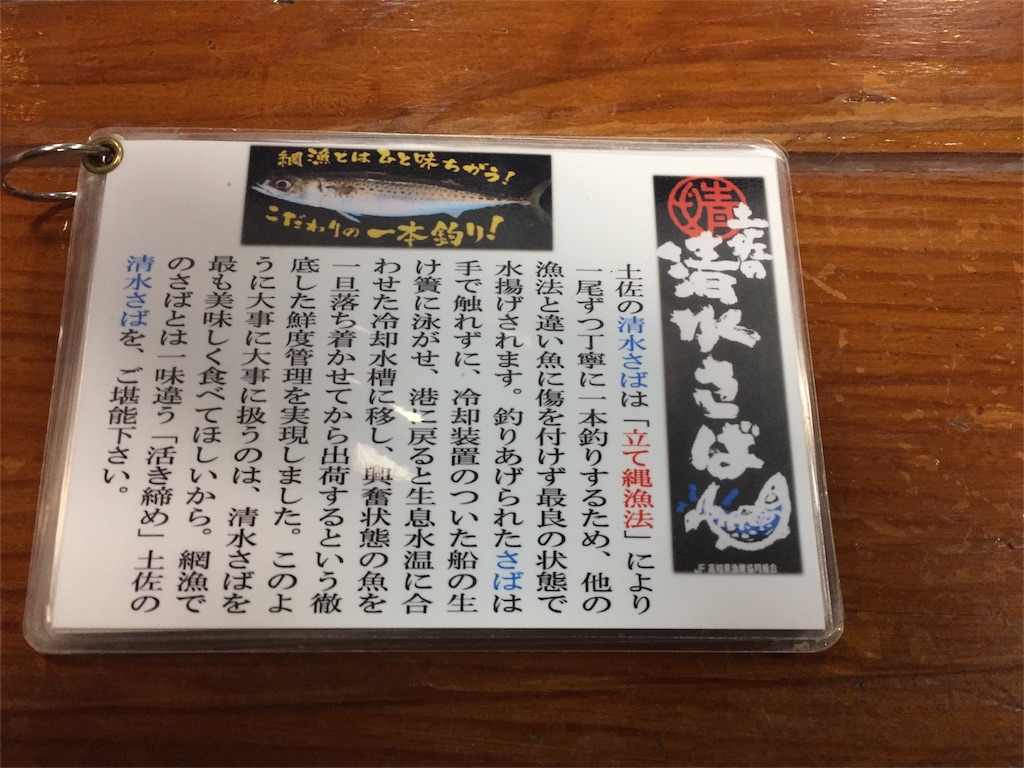 土佐の
清水さば
JF 高知県漁業協同組合
網漁とはひと味ちがう!
こだわりの一本釣り!
土佐の清水さばは「立て縄漁法」により
一尾ずつ丁寧に一本釣りするため、他の
漁法と違い魚に傷を付けず最良の状態で
水揚げされます。釣りあげられたさばは
手で触れずに、冷却装置のついた船の生
け簀に泳がせ、港に戻ると生息水温に合
わせた冷却水槽に移し、興奮状態の魚を
一旦落ち着かせてから出荷するという徹
底した鮮度管理を実現しました。このよ
うに大事に大事に扱うのは、清水さばを
最も美味しく食べてほしいから。網漁で
のさばとは一味違う「活き締め」土佐の
清水さばを、ご堪能下さい。